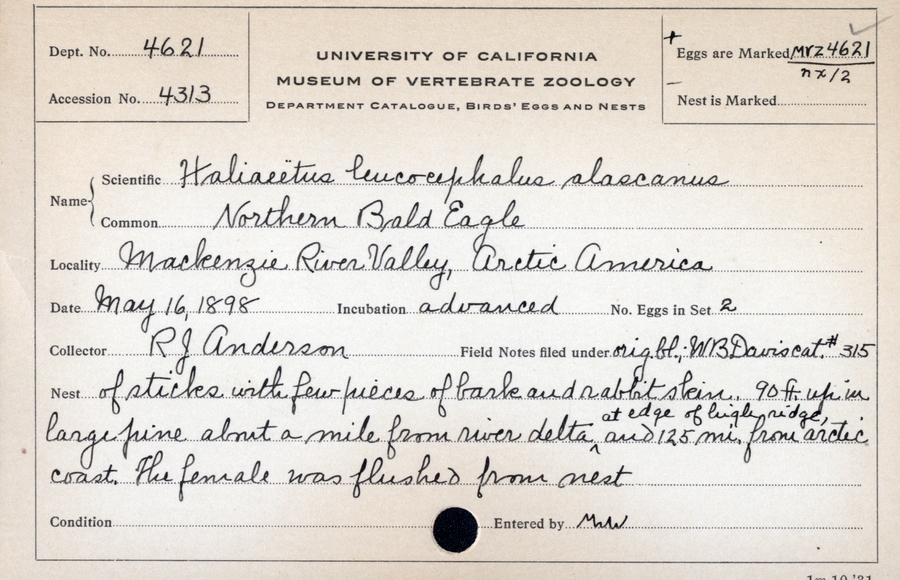 Dept. No. 4621
Accession No. 4313
UNIVERSITY OF CALIFORNIA
MUSEUM OF VERTEBRATE ZOOLOGY
DEPARTMENT CATALOGUE, BIRDS' EGGS AND NESTS
+ Eggs are Marked MVZ4621
nx/2
– Nest is Marked
Name
Scientific Haliaeëtus leucocephalus alascanus
Common Northern Bald Eagle
Locality Mackenzie River Valley, Arctic America
Date May 16, 1898 Incubation advanced No. Eggs in Set 2
Collector RJ Anderson Field Notes filed under orig. bl.; WB Davis cat. # 315
Nest of sticks with few pieces of bark and rabbit skin. 90 ft. up in
at edge of high ridge,
large pine about a mile from river delta ^ and 125 mi. from arctic
coast. The female was flushed from nest
Condition Entered by MW
1m 10 '31